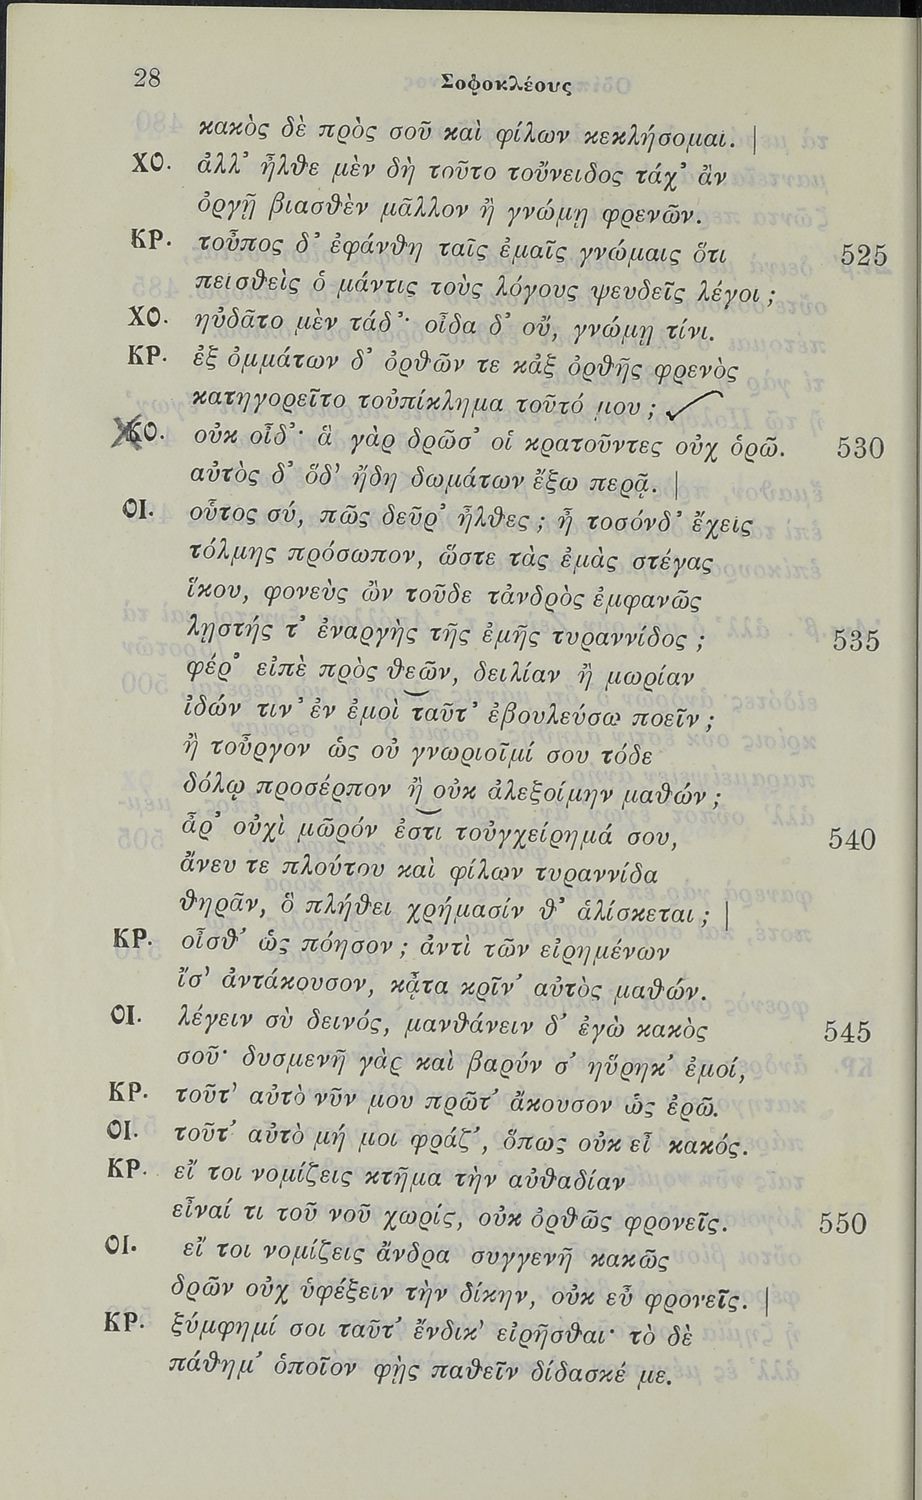 28 Σοφοκλέους
κακὸς δὲ πρὸς σοῦ καὶ φίλων κεκλήσομαι. |
ΧΟ. ἀλλ’ ἦλθε μὲν δὴ τοῦτο τοὔνειδος τάχ’ ἂν
ὀργῇ βιασθὲν μᾶλλον ἢ γνώμῃ φρενῶν.
ΚΡ. τοὖπος δ’ ἐφάνθη ταῖς ἐμαῖς γνώμαις ὅτι 525
πεισθεὶς ὁ μάντις τοὺς λόγους ψευδεῖς λέγοι ;
ΧΟ. ηὐδᾶτο μὲν τάδ’· οἶδα δ’ οὔ, γνώμῃ τίνι.
ΚΡ. ἐξ ὀμμάτων δ’ ὀρθῶν τε κἀξ ὀρθῆς φρενὸς
κατηγορεῖτο τοὐπίκλημα τοῦτό μου ; ✓
ΧΟ. οὐκ οἶδ’· ἃ γὰρ δρῶσ’ οἱ κρατοῦντες οὐχ ὁρῶ. 530
αὐτὸς δ’ ὅδ’ ἤδη δωμάτων ἔξω περᾷ. |
ΟΙ. οὗτος σύ, πῶς δεῦρ’ ἦλθες ; ἦ τοσόνδ’ ἔχεις
τόλμης πρόσωπον, ὥστε τὰς ἐμὰς στέγας
ἵκου, φονεὺς ὢν τοῦδε τἀνδρὸς ἐμφανῶς
λῃστής τ’ ἐναργὴς τῆς ἐμῆς τυραννίδος ; 535
φέρ’ εἰπὲ πρὸς θεῶν, δειλίαν ἢ μωρίαν
ἰδών τιν’ ἐν ἐμοὶ ταῦτ’ ἐβουλεύσω ποεῖν ;
ἢ τοὖργον ὡς οὐ γνωριοῖμί σου τόδε
δόλῳ προσέρπον ἢ οὐκ ἀλεξοίμην μαθών ;
ἆρ’ οὐχὶ μῶρόν ἐστι τοὐγχείρημά σου, 540
ἄνευ τε πλούτου καὶ φίλων τυραννίδα
θηρᾶν, ὃ πλήθει χρήμασίν θ’ ἁλίσκεται ; |
ΚΡ. οἶσθ’ ὡς πόησον ; ἀντὶ τῶν εἰρημένων
ἴσ’ ἀντάκουσον, κᾆτα κρῖν’ αὐτὸς μαθών.
ΟΙ. λέγειν σὺ δεινός, μανθάνειν δ’ ἐγὼ κακὸς 545
σοῦ· δυσμενῆ γὰρ καὶ βαρύν σ’ ηὕρηκ’ ἐμοί,
ΚΡ. τοῦτ’ αὐτὸ νῦν μου πρῶτ’ ἄκουσον ὡς ἐρῶ.
ΟΙ. τοῦτ’ αὐτὸ μή μοι φράζ’, ὅπως οὐκ εἶ κακός.
ΚΡ. εἴ τοι νομίζεις κτῆμα τὴν αὐθαδίαν
εἶναί τι τοῦ νοῦ χωρίς, οὐκ ὀρθῶς φρονεῖς. 550
ΟΙ. εἴ τοι νομίζεις ἄνδρα συγγενῆ κακῶς
δρῶν οὐχ ὑφέξειν τὴν δίκην, οὐκ εὖ φρονεῖς. |
ΚΡ. ξύμφημί σοι ταῦτ’ ἔνδικ’ εἰρῆσθαι· τὸ δὲ
πάθημ’ ὁποῖον φῂς παθεῖν δίδασκέ με.